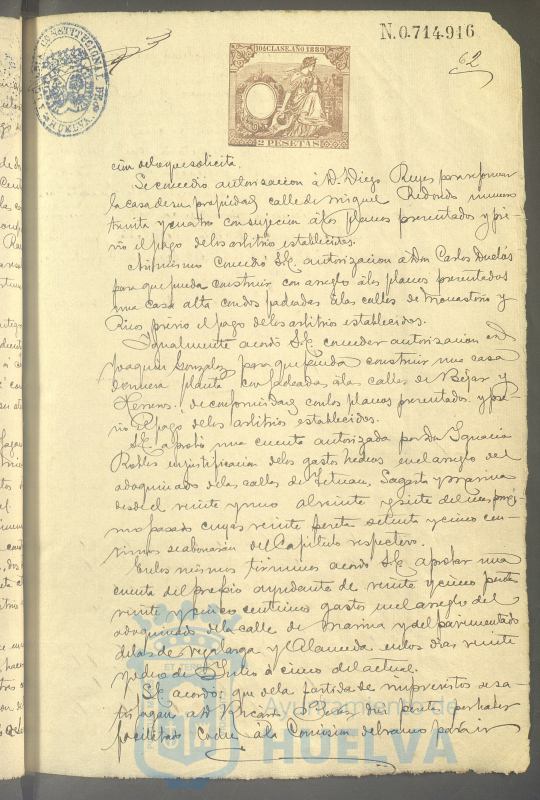 N.0.714.916
62
ALCALDIA CONSTITUCIONAL
HUELVA
10ª CLASE. AÑO 1889
2 PESETAS
cion de lo que solicita.
Se concedió autorizacion á D. Diego Reyes para reformar
la casa de su propiedad, calle de Miguel Redondo numero
treinta y cuatro con sujecion á los planos presentados y pré-
vio el pago de los arbitrios establecidos.
Asimismo concedió S.E. autorizacion a Don Carlos
para que pueda construir con arreglo á los planos presentados
una casa alta con dos fachadas á las calles de Monasterio y
Rico prévio el pago de los arbitrios establecidos.
Igualmente acordó S.E. conceder autorizacion a D.
Joaquin Gonzalez para que pueda construir una casa
de nueva planta con fachadas á las calles de Bejar y
de conformidad con los planos presentados y pré-
vio el pago de los arbitrios establecidos.
S.E. aprobó una cuenta autorizada por Don Ignacio
Robles en justificacion de los gastos hechos en el arreglo del
adoquinado de las calles de Tetuan, Sagasta y Marina
desde el veinte y uno al veinte y siete del mes proxi-
mo pasado cuyas veinte pesetas setenta y cinco cen-
timos se abonarán del Capitulo respectivo.
En los mismos términos acordó S.E. aprobar una
cuenta del propio ayudante de veinte y cinco pesetas
veinte y cinco centimos gastos en el arreglo del
adoquinado de la calle de Marina y del pavimentado
de las de Vegalarga y Alameda en los dias veinte
y ocho de Julio á cinco del actual.
Se acordó que de la partida de imprevistos se sa-
tisfagan a D. Ricardo diez pesetas por haber
facilitado coche á la Comision del ramo para ir
Ayuntamiento de
HUELVA